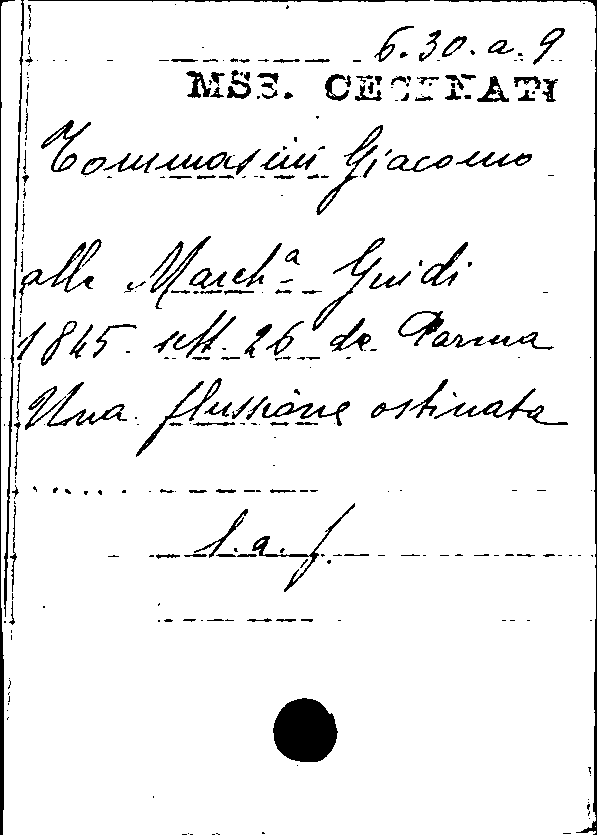 6.30.a.9
MSS. CECINATI
Tommasini Giacomo
alla March.ª Guidi
1845 sett. 26 da Parma
Una flussione ostinata
.......
l.a.f.